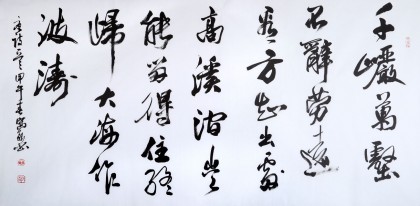 千巖萬壑
不辭勞遠
看方知出處
高溪澗豈
能留得住終
歸大海作
波濤
唐詩 甲午春